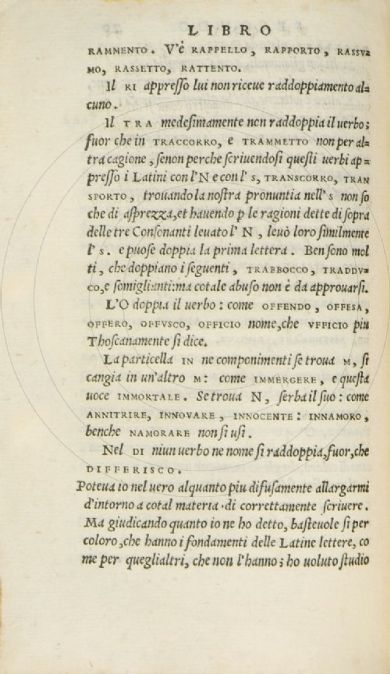 LIBRO
RAMMENTO. V'è RAPPELLO, RAPPORTO, RASSV-
MO, RASSETTO, RATTENTO.
Il RI appresso lui non riceue raddoppiamento al-
cuno.
Il TRA medesimamente non raddoppia il uerbo;
fuor che in TRACCORRO, e TRAMMETTO non per al-
tra cagione, senon perche scriuendosi questi uerbi ap-
presso i Latini con l'N e con l's, TRANSCORRO, TRAN
SPORTO, trouando la nostra pronuntia nell's non so
che di asprezza, et hauendo p le ragioni dette di sopra
delle tre Consonanti leuato l'N, leuò loro similmente
l's. e puose doppia la prima lettera. Ben sono mol
ti, che doppiano i seguenti, TRABBOCCO, TRADDV-
CO, e somiglianti: ma cotale abuso non è da approuarsi.
L'O doppia il uerbo: come OFFENDO, OFFESA,
OFFERO, OFFVSCO, OFFICIO nome, che VFFICIO piu
Thoscanamente si dice.
La particella IN ne componimenti se troua M, si
cangia in un'altro M: come IMMERGERE, e questa
uoce IMMORTALE. Se troua N, serba il suo: come
ANNITRIRE, INNOVARE, INNOCENTE: INNAMORO,
benche NAMORARE non si usi.
Nel DI niun uerbo ne nome si raddoppia, fuor, che
DIFFERISCO.
Poteua io nel uero alquanto piu difusamente allargarmi
d'intorno a cotal materia di correttamente scriuere.
Ma giudicando quanto io ne ho detto, basteuole si per
coloro, che hanno i fondamenti delle Latine lettere, co
me per quegli altri, che non l'hanno; ho uoluto studio